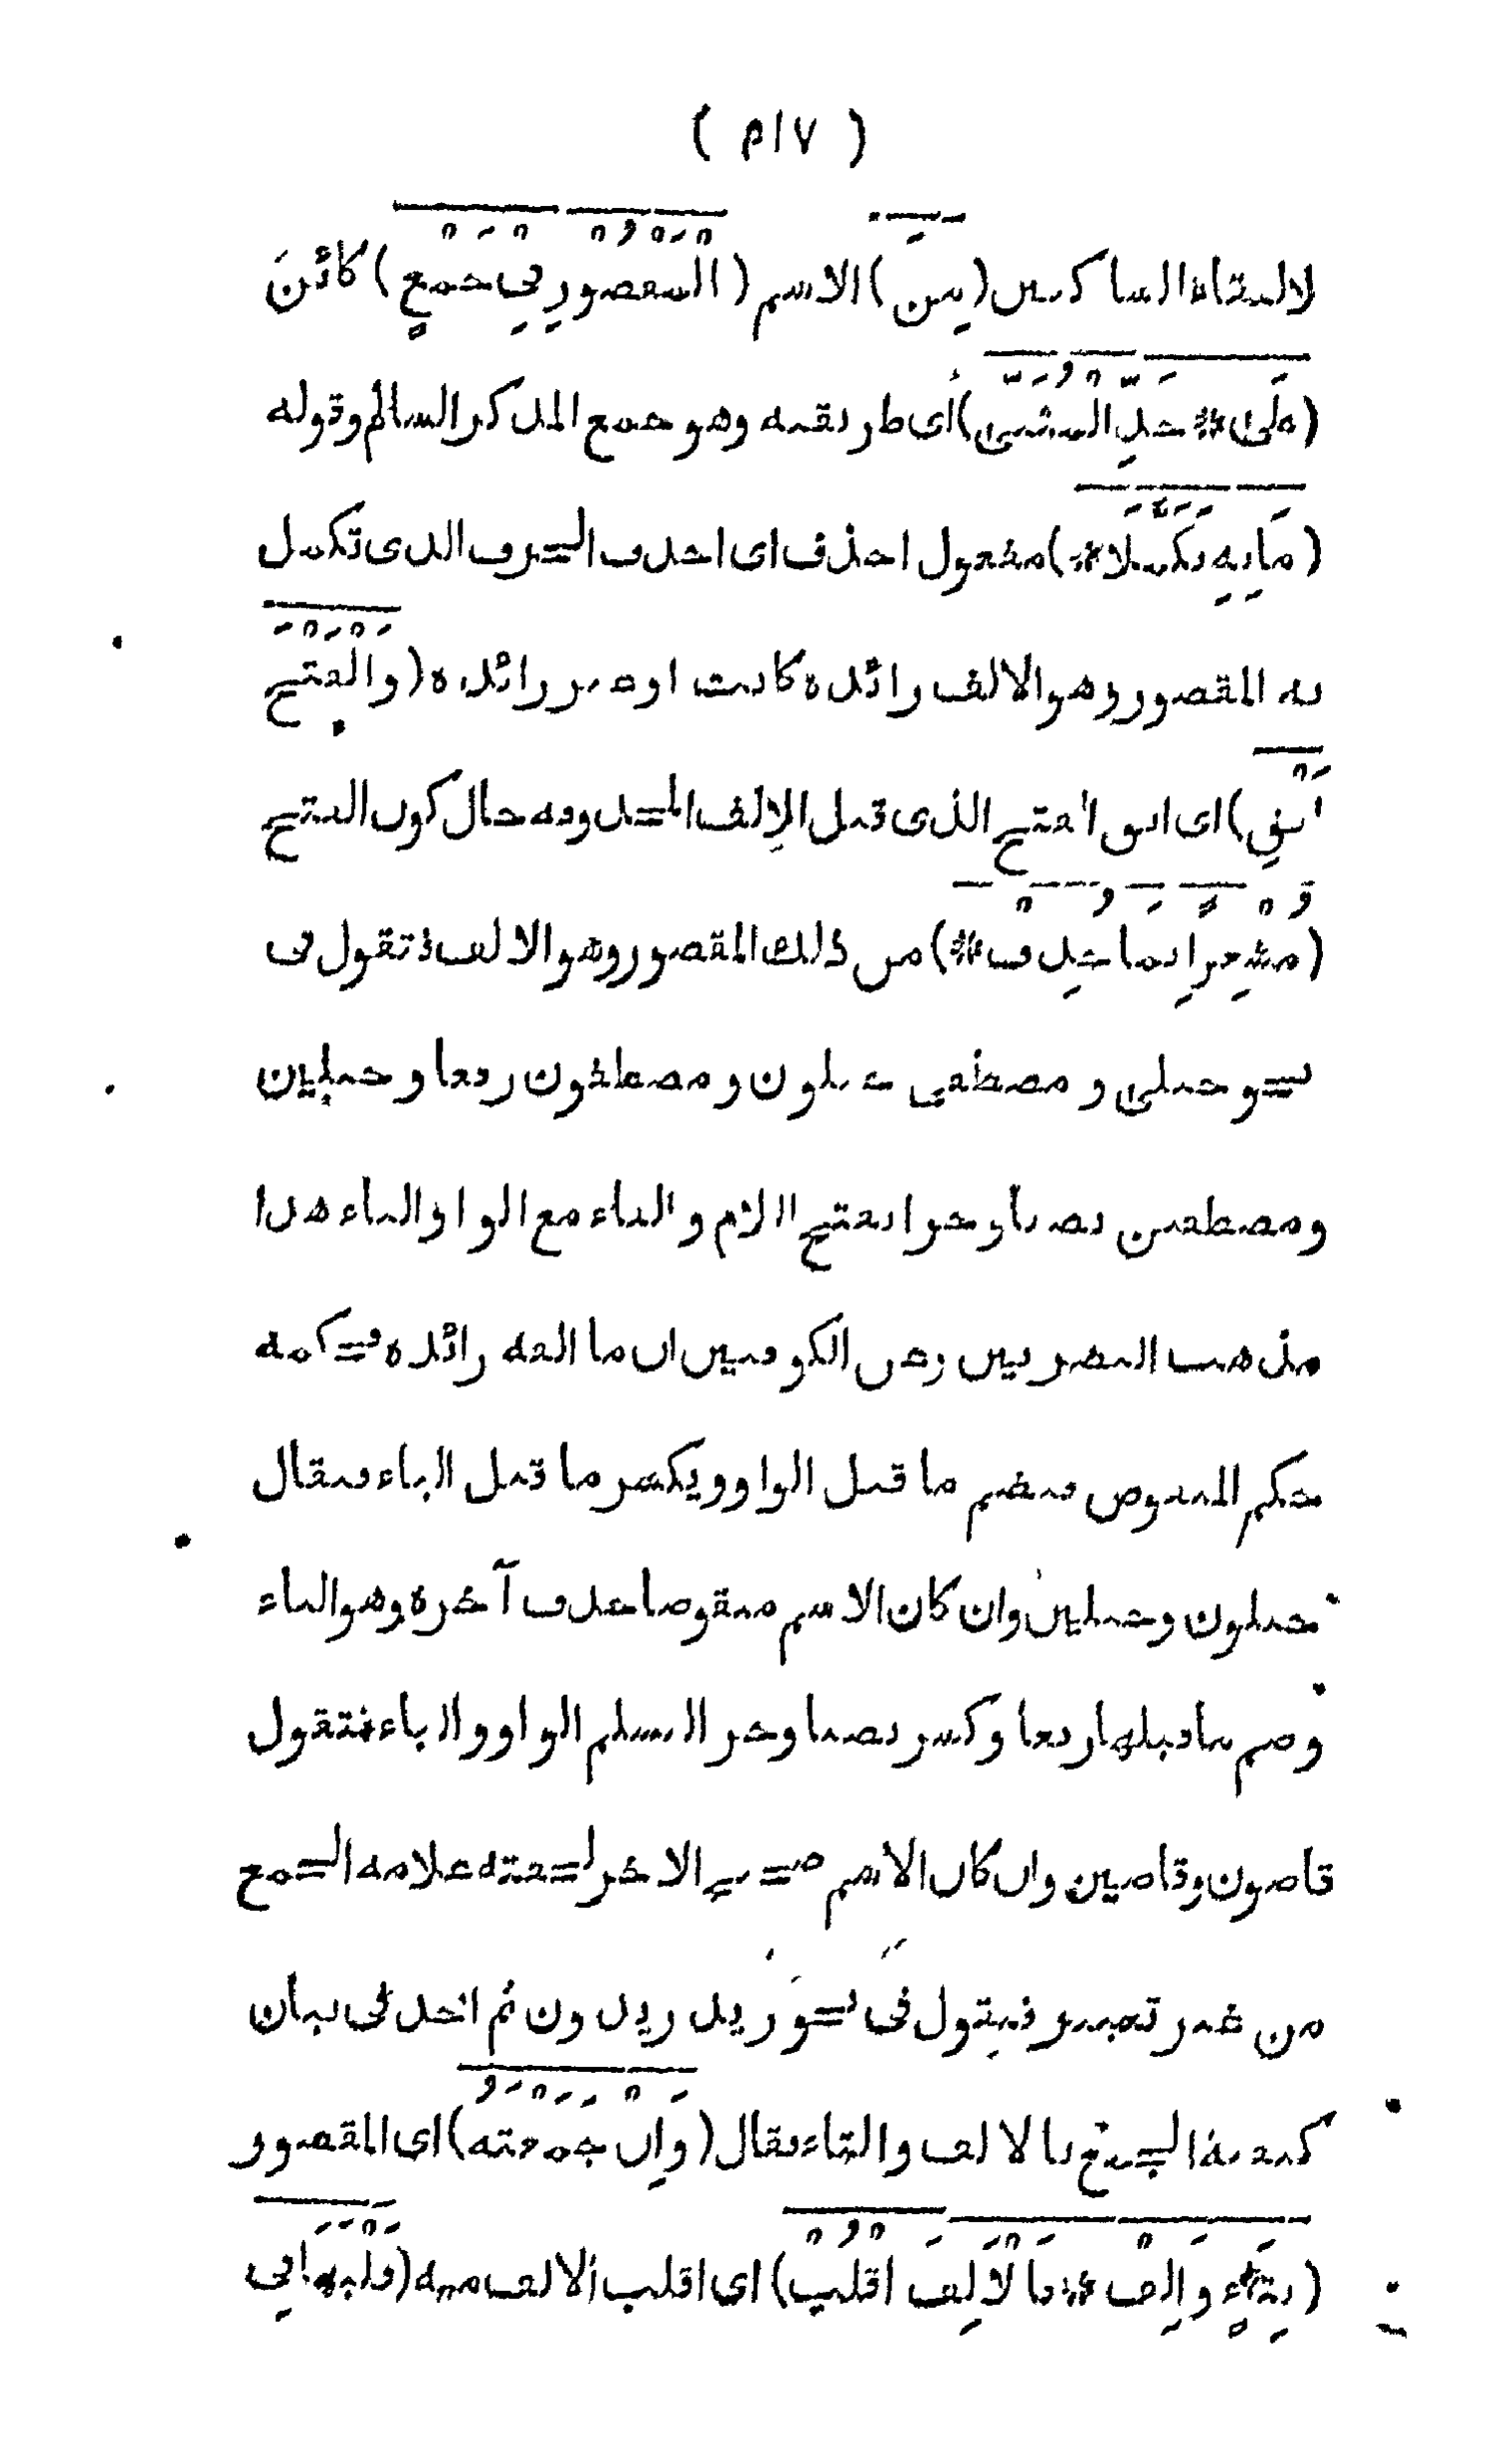 ( ٤١٧ )
لالتقاء الساكنين (مِنَ) الاسم (الْمَقْصُورِ فِي جَمْعٍ) كائنَ
(عَلَى * حَدِّ الْمُثَنَّى) أى طريقته وهو جمع المذكر السالم وقوله
(مَا بِهِ تَكَمَّلَا *) مفعول احذف اى احذف الحرف الذى تكمل
به المقصور وهو الالف زائدة كانت او غير زائدة (وَالْفَتْحَ
أَبْقِ) اى ابق الفتح الذى قبل الالف المحذوفه حال كون الفتح
(مُشْعِرًا بِمَا حُذِفْ *) من ذلك المقصور وهو الالف فتقول فى
نحو حبلى و مصطفى حبلون و مصطفون رفعا و حبلين
ومصطفين نصبا و جرا بفتح اللام و الفاء مع الواو والياء هذا
مذهب البصريين وعن الكوفيين ان ما الفه زائدة فحكمه
حكم المنقوص فيضم ما قبل الواو ويكسر ما قبل الياء فيقال
حبلون وحبلين وان كان الاسم منقوصا حذف آخره وهو الياء
وضم ما قبلها رفعا و كسر نصبا وجر التسلم الواو والياء فتقول
قاضون وقاضين وان كان الاسم صحيح الآخر لحقته علامة الجمع
من غير تغيير فيقول فى نحو زيد زيدون ثم اخذ فى بيان
كيفية الجمع بالالف والتاء فقال (وَإِنْ جَمَعْتَهُ) اى المقصور
(بِتَاءٍ وَأَلِفْ * فَالْأَلِفَ اقْلِبْ) اى اقلب الالف منه (قَلْبَهَا فِي